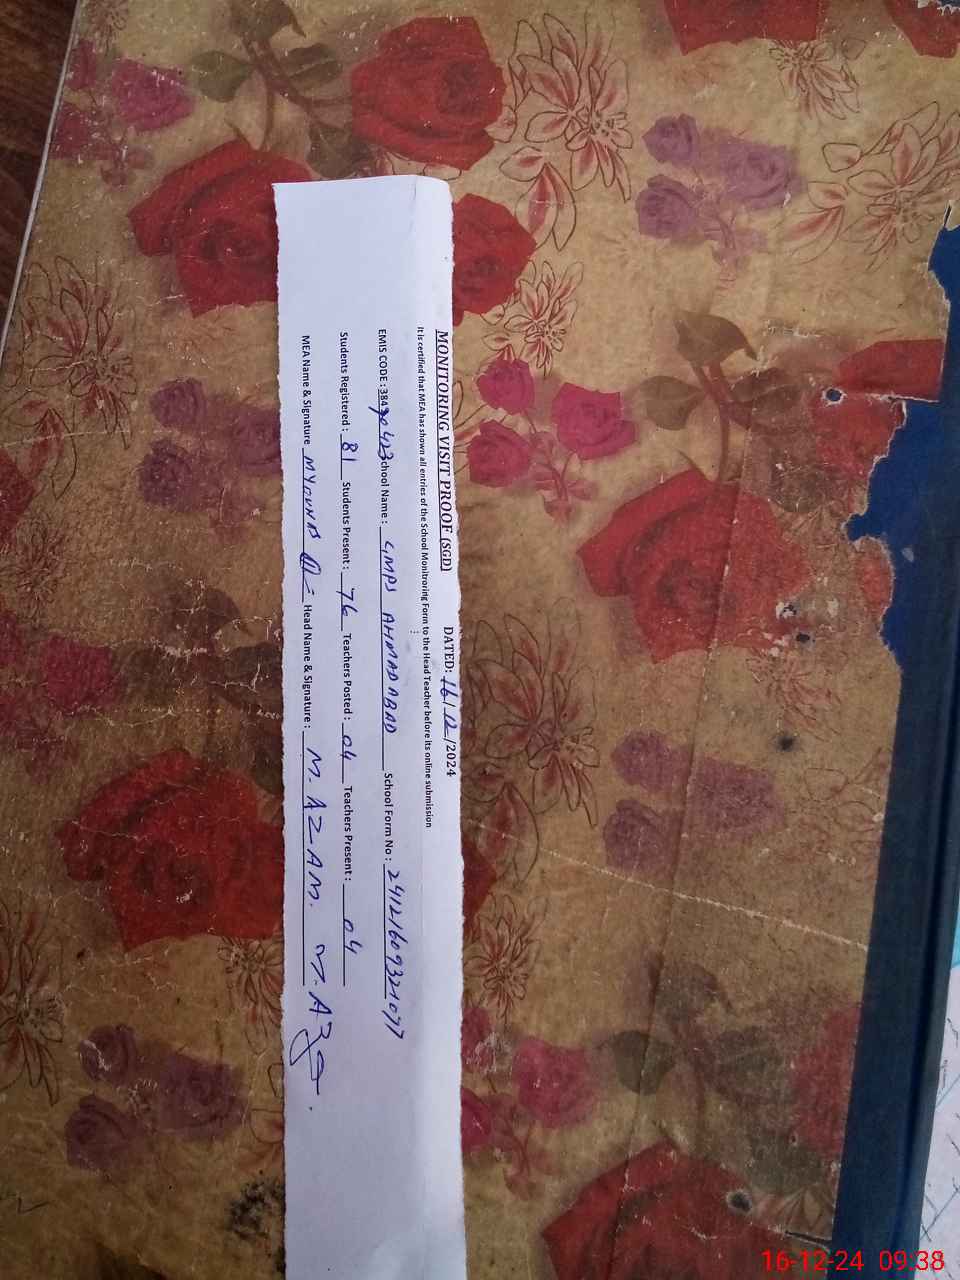 MONITORING VISIT PROOF (SGD) DATED: 16/12/2024
It is certified that MEA has shown all entries of the School Monitroring Form to the Head Teacher before its online submission
EMIS CODE : 38490423chool Name : GMPS AHMADABAD School Form No : 24121609321077
Students Registered : 81 Students Present : 76 Teachers Posted : 04 Teachers Present : 04
MEA Name & Signature Head Name & Signature : M. AZAM. M. AZ
16-12-24 09.38